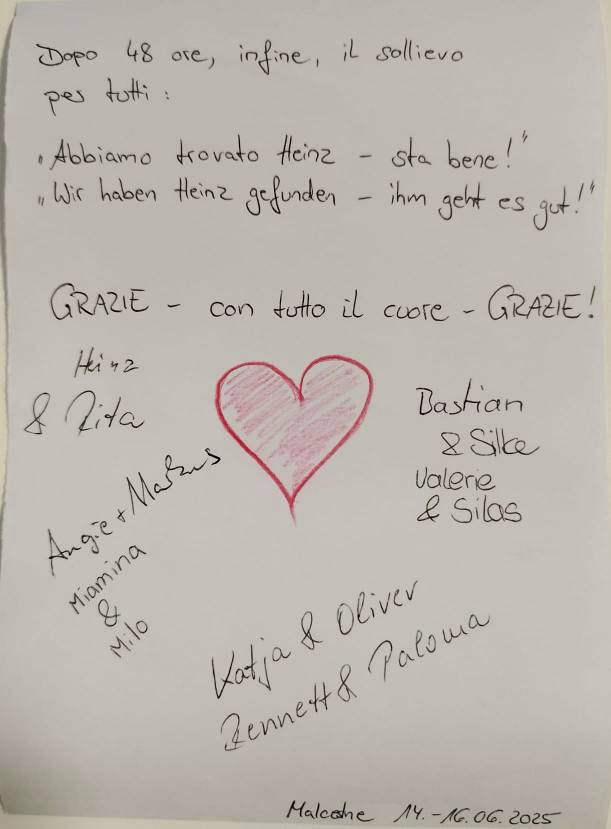 Dopo 48 ore, infine, il sollievo
per tutti:
"Abbiamo trovato Heinz - sta bene!"
„Wir haben Heinz gefunden - ihm geht es gut!"
GRAZIE - con tutto il cuore - GRAZIE!
Heinz
& Rita
Bastian
& Silke
Valerie
& Silas
Angie + Markus
Miamina
&
Milo
Katja & Oliver
Bennett & Paloma
Malcesine 14.-16.06.2025